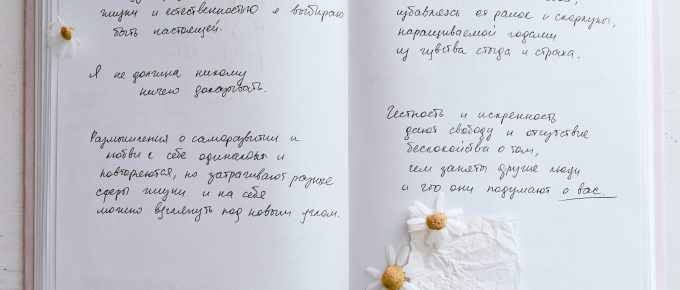 жизни и естественностью я выбираю
быть настоящей.
Я не должна никому
ничего доказывать.
Размышления о саморазвитии и
любви к себе одинаковы и
повторяются, но затрагивают разные
сферы жизни и на себя
можно взглянуть под новым углом.
избавляясь от рамок и скорлупы,
наращиваемой годами
из чувства стыда и страха.
Честность и искренность
дают свободу и отсутствие
беспокойства о том,
чем заняты другие люди
и что они подумают о вас.